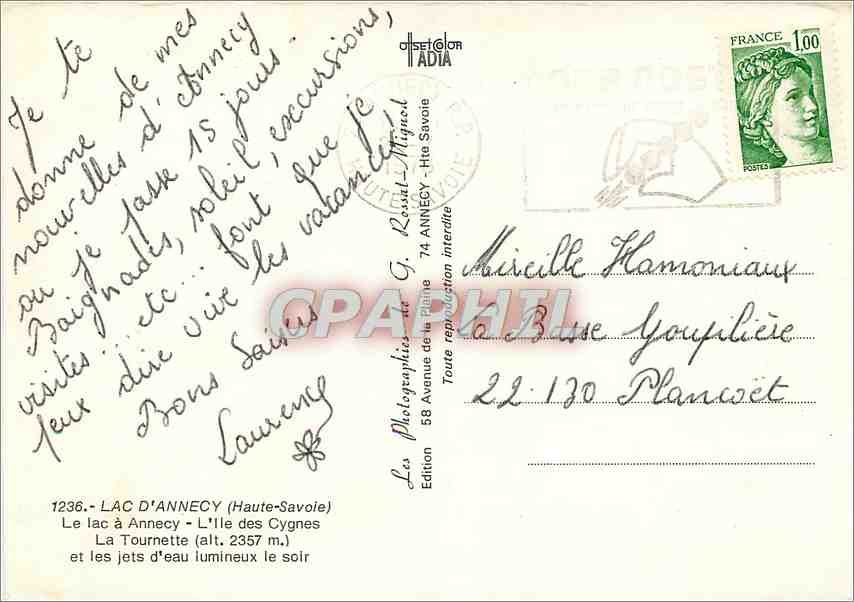 Je te
donne de mes
nouvelles d'Annecy
ou je passe 15 jours.
Baignades, soleil, excursions,
visites... etc... font que je
peux dire vive les vacances!
Bons Baisers
Laurence
1236.- LAC D'ANNECY (Haute-Savoie)
Le lac à Annecy - L'Ile des Cygnes
La Tournette (alt. 2357 m.)
et les jets d'eau lumineux le soir
OFFSETCOLOR
ADIA
Les Photographies de G. Rossat-Mignod
Edition 58 Avenue de la Plaine 74 ANNECY - Hte Savoie
Toute reproduction interdite
HAUTE-SAVOIE
FRANCE 1,00
POSTES
Mireille Hamoniaux
La Basse Goupilière
22-130 Plancoët
CPAPHIL